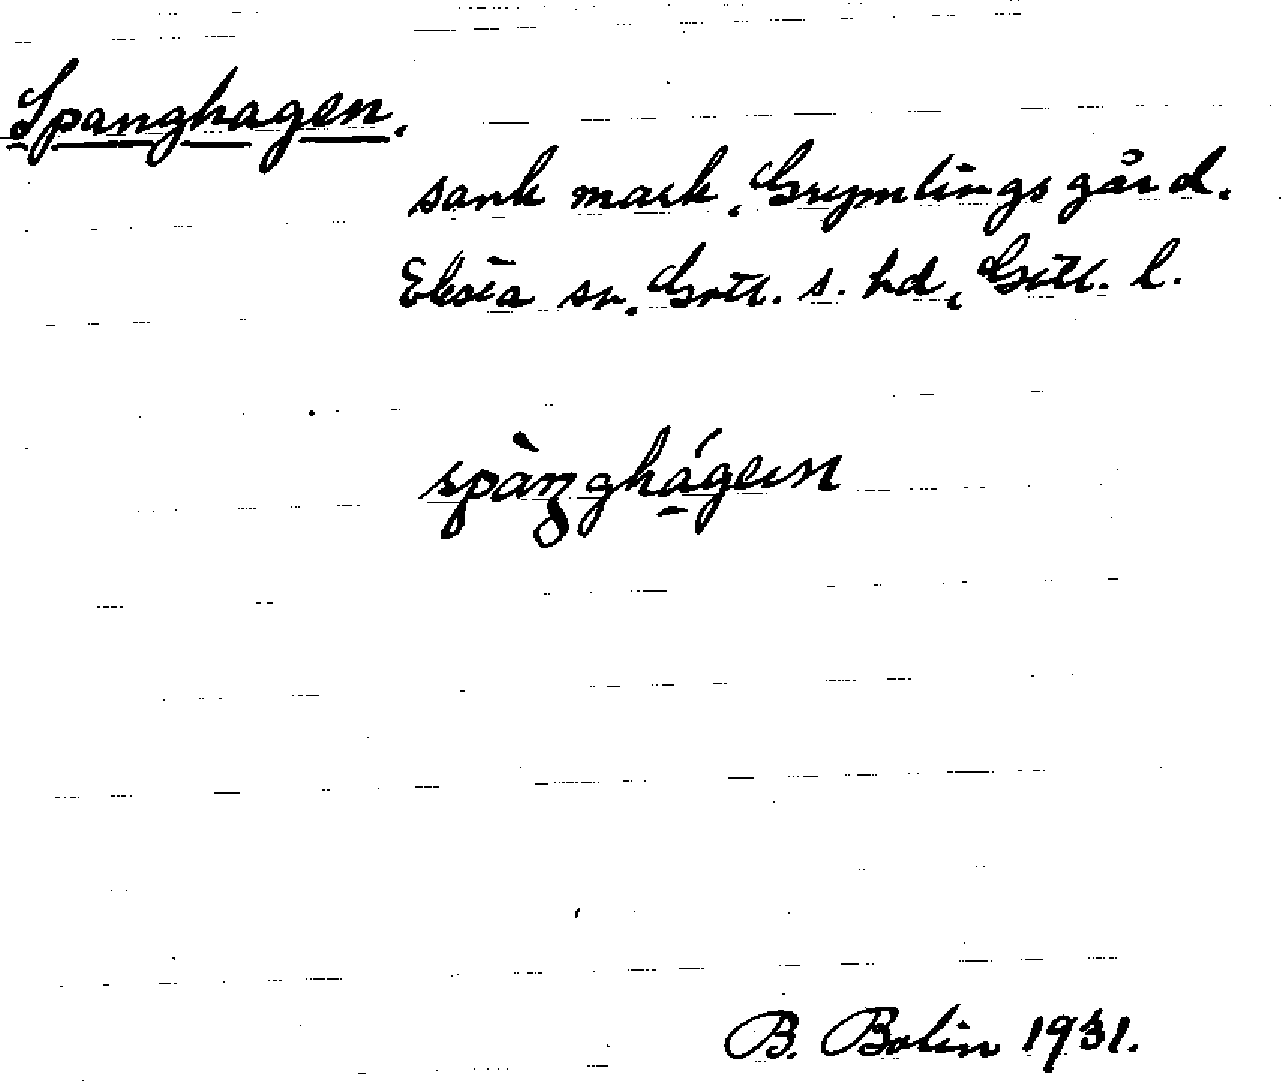 Spanghagen.
sank mark, Grymlings gård.
Eksta sn. Gotl. s. hd, Gotl. l.
spàŋghágen
B. Bolin 1931.